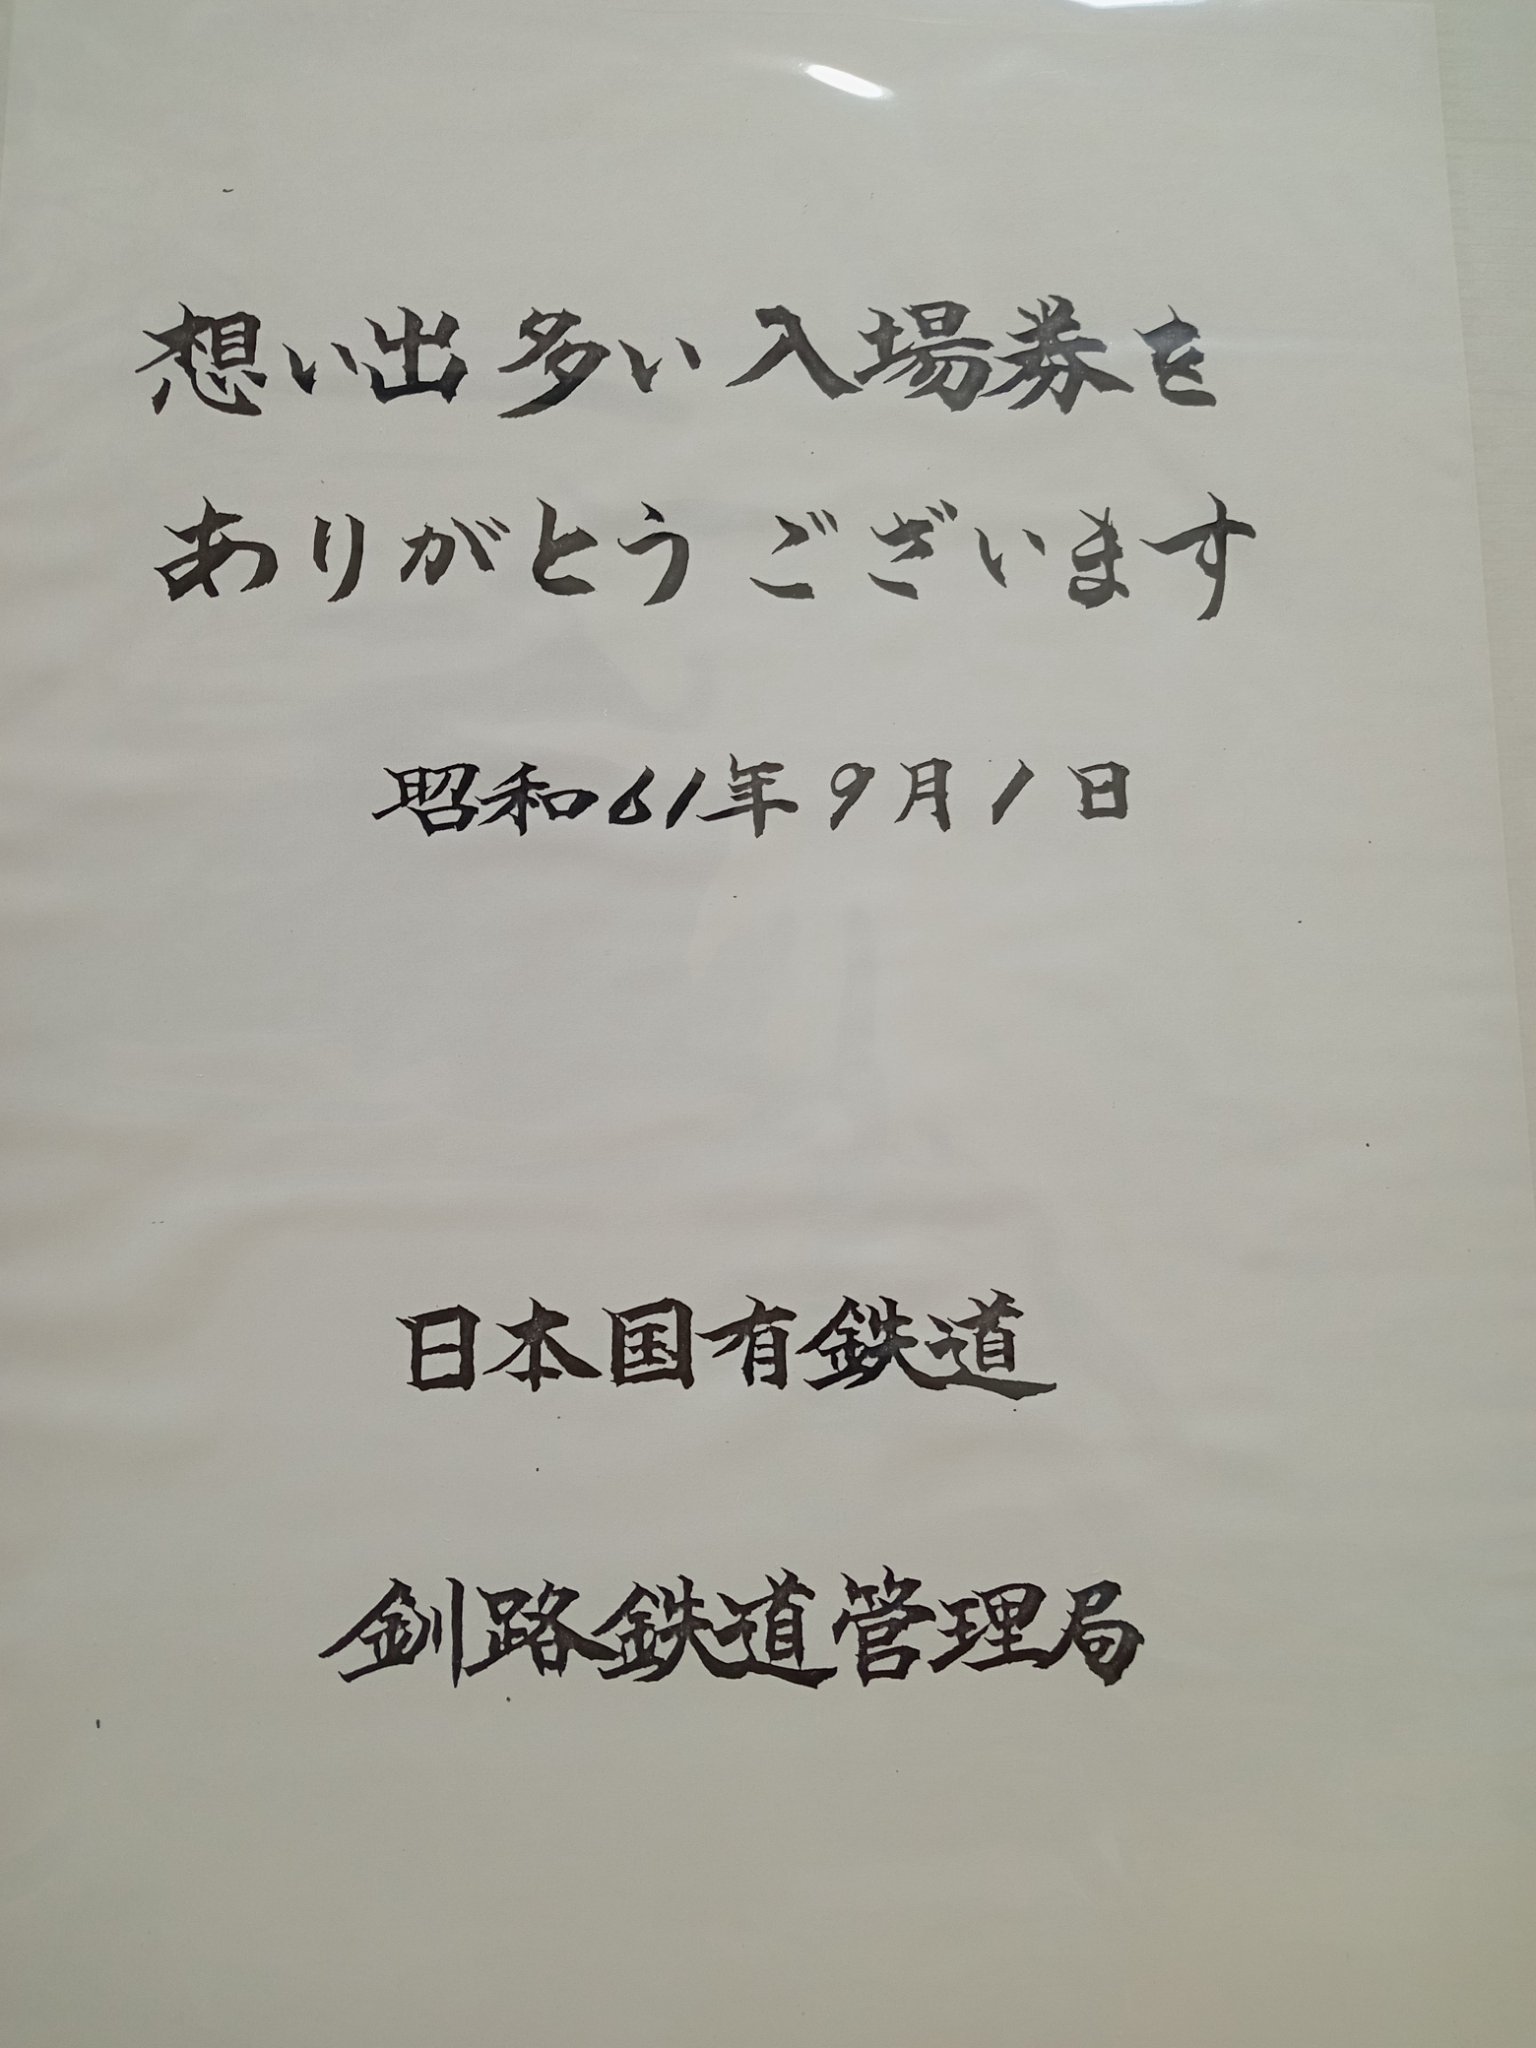 想い出多い入場券を
ありがとうございます
昭和61年9月1日
日本国有鉄道
釧路鉄道管理局